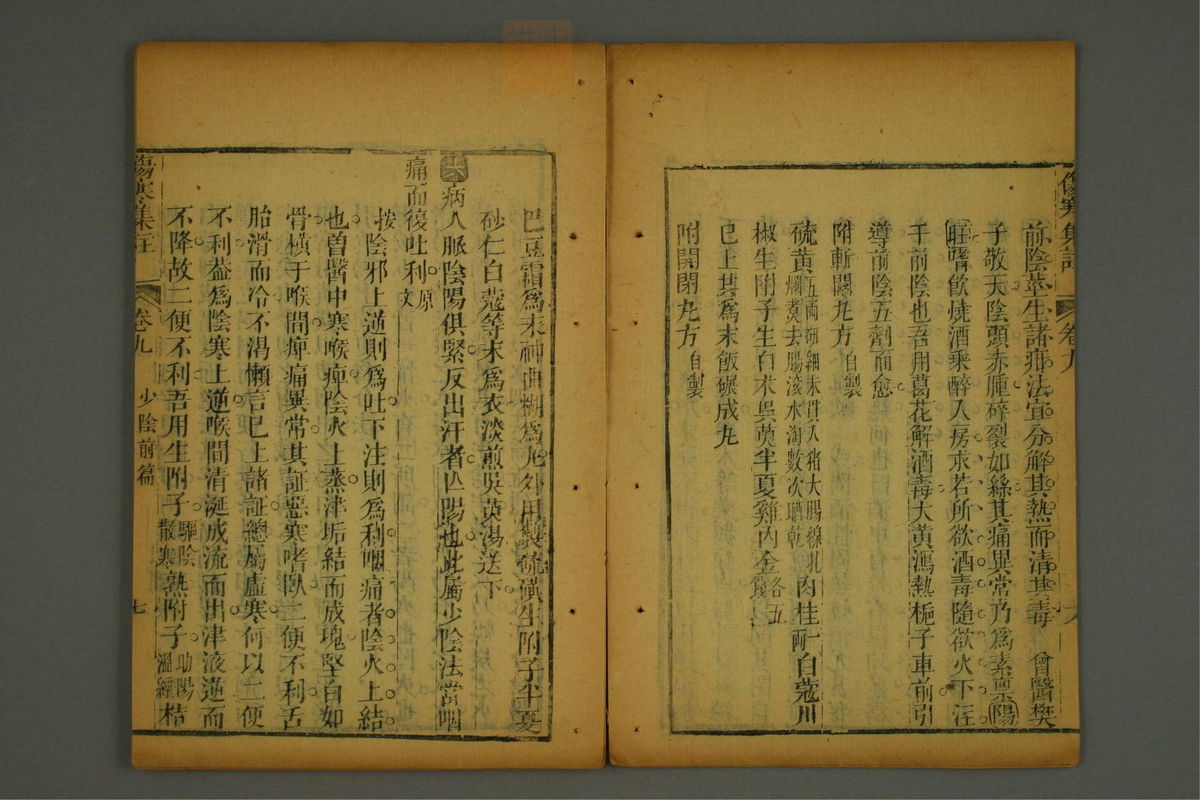 傷寒集註 卷九 六
前陰莖生諸瘡法宜分解其熱而清其毒 曾醫樊
子敬天陰頭赤腫碎裂如絲其痛異常乃為素稟陽
旺嗜飲燒酒乘醉入房求若所欲酒毒隨欲火下注
于前陰也吾用葛花解酒毒大黃瀉熱梔子車前引
導前陰五劑而愈
附斬關丸方 自製
硫黃 五兩研細末貫入猪大腸線扎爛煑去腸滾水淘數次晒乾 肉桂 白蔻 川
椒 生附子 生白朮 吳萸 半夏 雞內金 各五
已上共為末飯碾成丸
附開閉丸方 自製
巴豆霜為末神曲糊為丸外用硫磺生附子半夏
砂仁白蔻等末為衣淡煎吳萸湯送下
六 病人脈陰陽俱緊反出汗者亡陽也此屬少陰法當咽
痛而復吐利 原文
按陰邪上逆則為吐下注則為利咽痛者陰火上結
也曾醫中寒喉痺陰火上蒸津垢結而成塊堅白如
骨橫于喉間痺痛異常其証惡寒嗜臥二便不利舌
胎滑而冷不渴懶言已上諸証總屬虛寒何以二便
不利葢為陰寒上逆喉間清涎成流而出津液逆而
不降故二便不利吾用生附子 驅陰散寒 熟附子 助陽溫經 桔
傷寒集註 卷九 少陰前篇 七